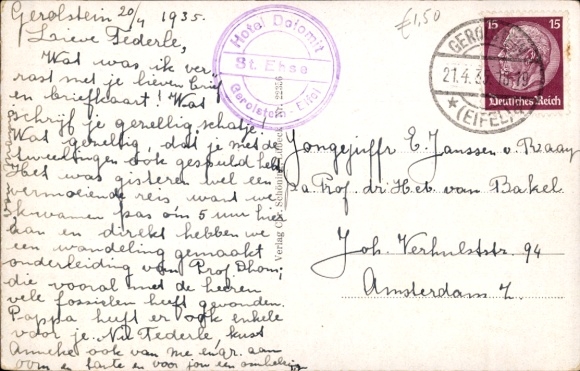 Gerolstein 20/4 1935.
Lieve Federle,
Wat was ik ver
rast met je lieven brief
en briefkaart! Wat
schrijf je gezellig, schatje.
Wat gezellig, dat je met de
tweelingen ook gespeeld hebt
Het was gisteren wel een
vermoeiende reis, want we
kwamen pas óm 5 uur hier
aan en direkt hebben we
een wandeling gemaakt
onderleiding van Prof. Dhom,
die vooral met de heeren
vele fossielen heeft gevonden.
Pappa heeft er ook enkele
voor je. Nu Federle, kust
Anneke ook van me en gr. aan
oom en tante en voor jou een omhelzing
Hotel Dolomit
St. Ehse
Gerolstein - Eifel
€1,50
GEROLSTEIN
21.4.3
(EIFEL)
15 15
Deutsches Reich
Verlag Nr. 22556
Jongejuffr E. Janssen v. Raay
p/a Prof. dr. Het. van Bakel
Joh. Verhulststr. 94
Amsterdam Z.